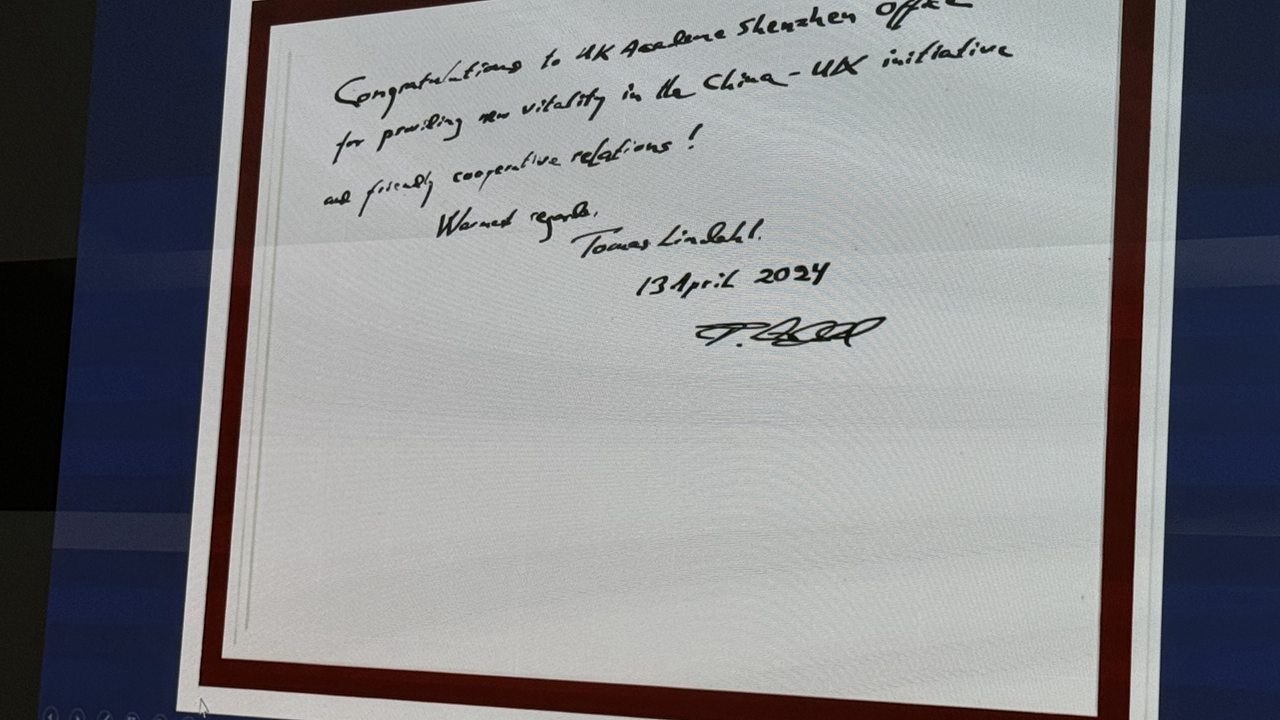 Congratulations to UK Academe Shenzhen Office
for providing new vitality in the China-UK initiative
and friendly cooperative relations!
Warmest regards,
Tomas Lindahl.
13 April 2024